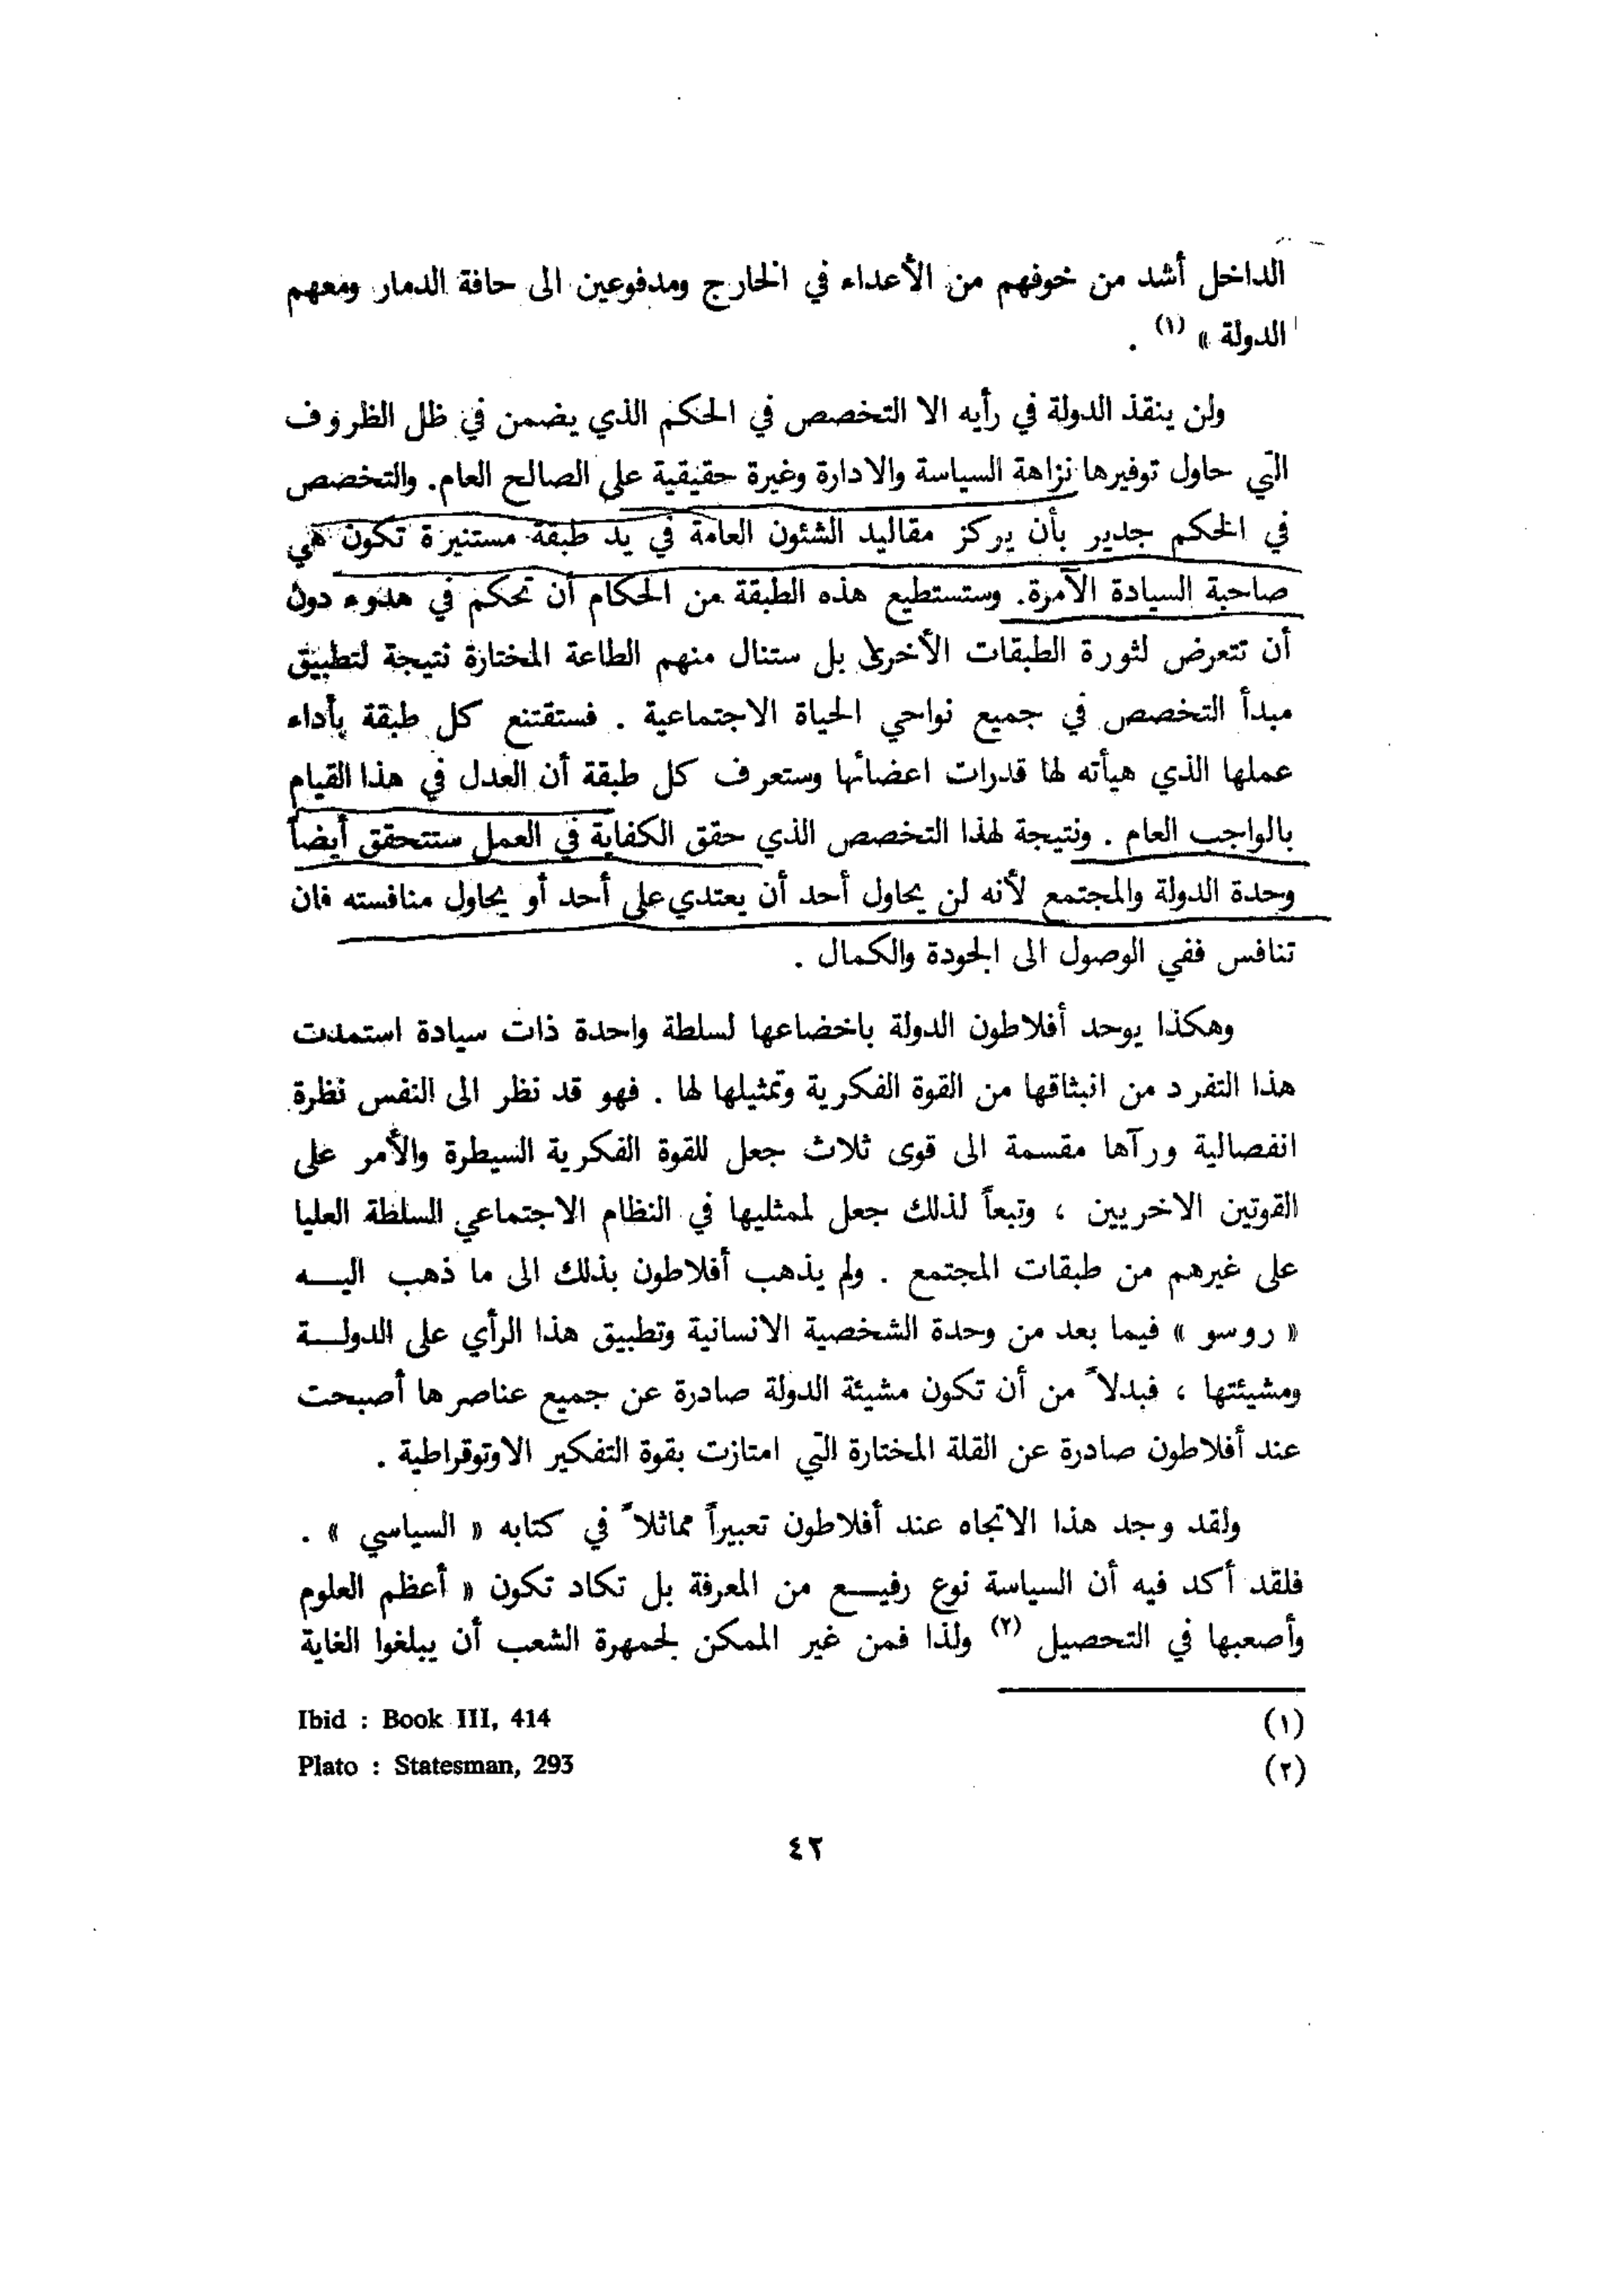 الداخل أشد من خوفهم من الأعداء في الخارج ومدفوعين الى حافة الدمار ومعهم
الدولة » (١) .
ولن ينقذ الدولة في رأيه الا التخصص في الحكم الذي يضمن في ظل الظروف
التي حاول توفيرها نزاهة السياسة والادارة وغيرة حقيقية على الصالح العام. والتخصص
في الحكم جدير بأن يركز مقاليد الشئون العامة في يد طبقة مستنيرة تكون هي
صاحبة السيادة الآمرة. وستستطيع هذه الطبقة من الحكام أن تحكم في هدوء دون
أن تتعرض لثورة الطبقات الأخرى بل ستنال منهم الطاعة المختارة نتيجة لتطبيق
مبدأ التخصص في جميع نواحي الحياة الاجتماعية . فستقتنع كل طبقة بأداء
عملها الذي هيأته لها قدرات اعضائها وستعرف كل طبقة أن العدل في هذا القيام
بالواجب العام . ونتيجة لهذا التخصص الذي حقق الكفاية في العمل ستتحقق أيضاً
وحدة الدولة والمجتمع لأنه لن يحاول أحد أن يعتدي على أحد أو يحاول منافسته فان
تنافس ففي الوصول الى الجودة والكمال .
وهكذا يوحد أفلاطون الدولة باخضاعها لسلطة واحدة ذات سيادة استمدت
هذا التفرد من انبثاقها من القوة الفكرية وتمثيلها لها . فهو قد نظر الى النفس نظرة
انفصالية ورآها مقسمة الى قوى ثلاث جعل للقوة الفكرية السيطرة والأمر على
القوتين الاخريين ، وتبعاً لذلك جعل لممثليها في النظام الاجتماعي السلطة العليا
على غيرهم من طبقات المجتمع . ولم يذهب أفلاطون بذلك الى ما ذهب اليـــه
« روسو » فيما بعد من وحدة الشخصية الانسانية وتطبيق هذا الرأي على الدولـــة
ومشيئتها ، فبدلاً من أن تكون مشيئة الدولة صادرة عن جميع عناصرها أصبحت
عند أفلاطون صادرة عن القلة المختارة التي امتازت بقوة التفكير الاوتوقراطية .
ولقد وجد هذا الاتجاه عند أفلاطون تعبيراً مماثلاً في كتابه « السياسي » .
فلقد أكد فيه أن السياسة نوع رفيـــع من المعرفة بل تكاد تكون « أعظم العلوم
وأصعبها في التحصيل (٢) ولذا فمن غير الممكن لجمهرة الشعب أن يبلغوا الغاية
(١) Ibid : Book III, 414
(٢) Plato : Statesman, 293
٤٢